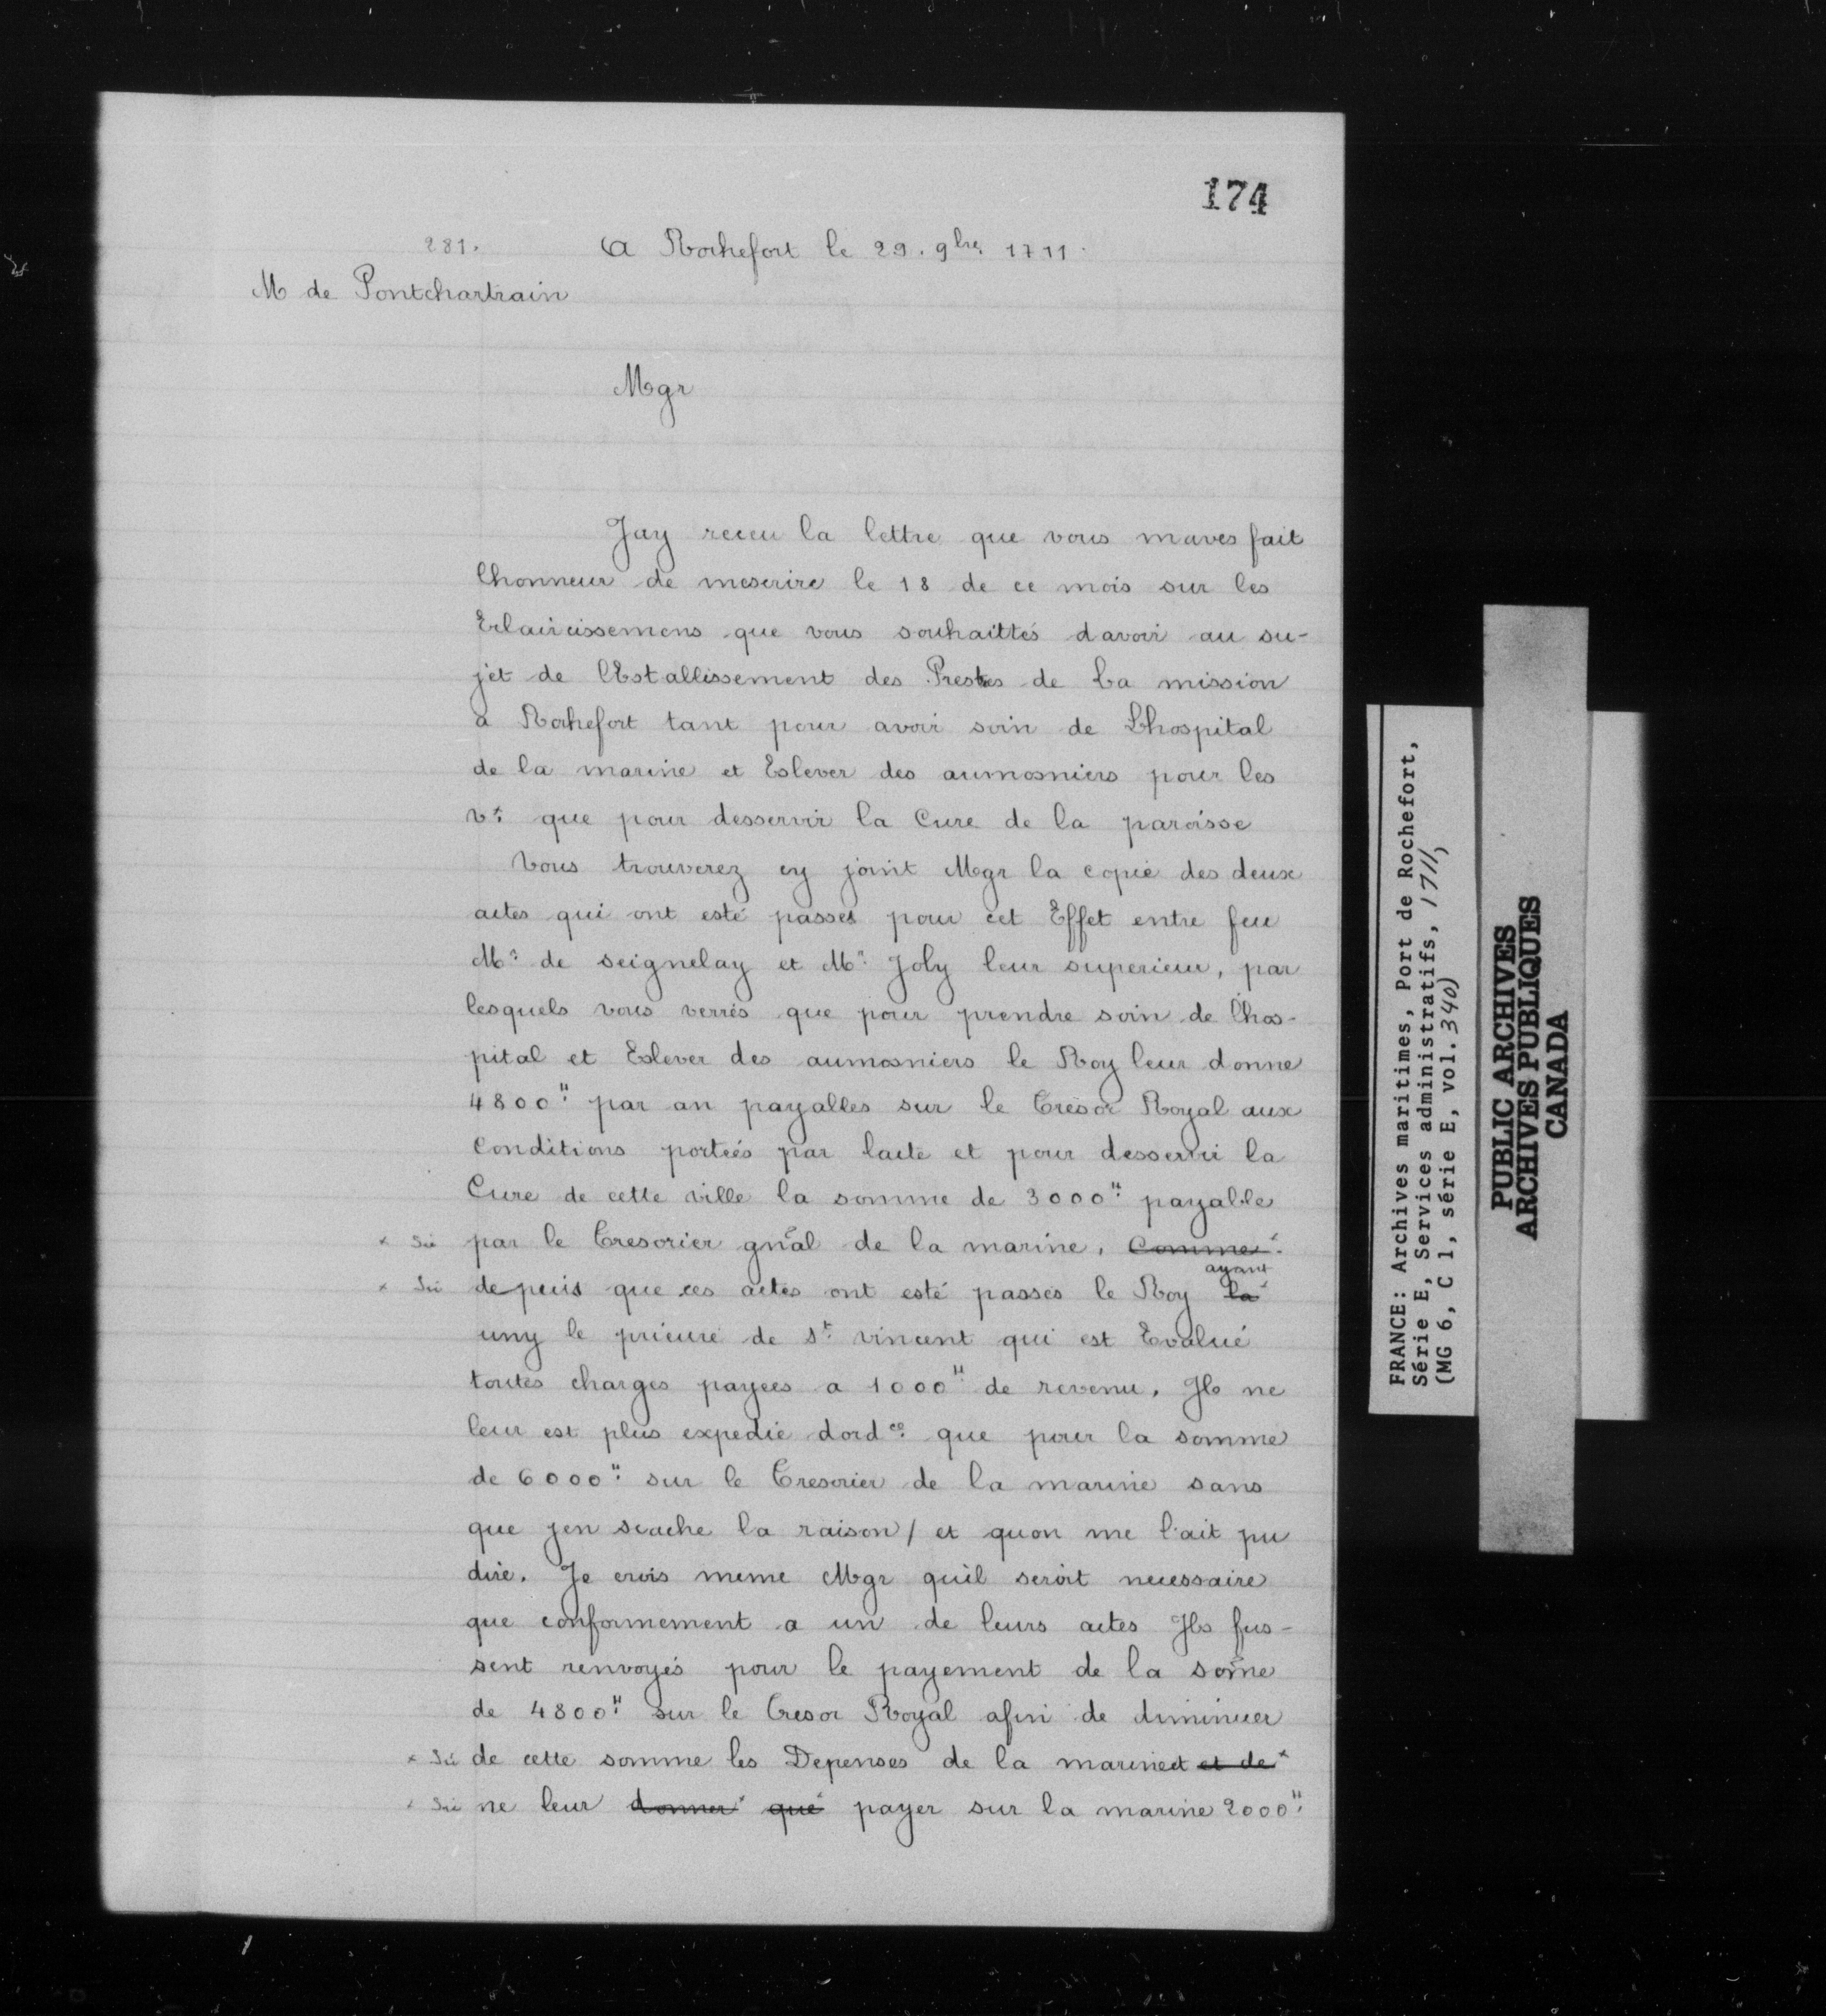 174
281.
A Rochefort le 29. 9bre 1711.
M de Pontchartrain
Mgr
Jay receu la lettre que vous maves fait
lhonneur de mescrire le 18 de ce mois sur les
Eclaircissemens que vous souhaittés davoir au su-
jet de lEstablissement des Prestres de La mission
a Rochefort tant pour avoir soin de Lhospital
de la marine et Eslever des aumosniers pour les
vx que pour desservir la Cure de la paroisse
Vous trouverez cy joint Mgr la copie des deux
actes qui ont esté passés pour cet Effet entre feu
Mr. de seignelay et Mr. Joly leur superieur, par
lesquels vous verrés que pour prendre soin de lhos-
pital et Eslever des aumosniers le Roy leur donne
4800" par an payables sur le Tresor Royal aux
Conditions portées par lacte et pour desservir la
Cure de cette ville la somme de 3000" payable
x Sic par le Tresorier gnâl de la marine, Comme x
ayant
x Sic depuis que ces actes ont esté passés le Roy la x
uny le prieuré de St. vincent qui est Evalué
toutes charges payees a 1000" de revenu. Ils ne
leur est plus expedié dordce. que pour la somme
de 6000" sur le Tresorier de la marine sans
que jen scache la raison / et quon me lait pu
dire. Je crois meme Mgr quil seroit necessaire
que conformement a un de leurs actes Ils fus-
sent renvoyés pour le payement de la some
de 4800" sur le Tresor Royal afin de diminuer
x Sic de cette somme les Depenses de la marine et et de x
x Sic ne leur donner x que payer sur la marine 2000"
FRANCE: Archives maritimes, Port de Rochefort,
Série E, Services administratifs, 1711,
(MG 6, C 1, série E, vol. 340)
PUBLIC ARCHIVES
ARCHIVES PUBLIQUES
CANADA